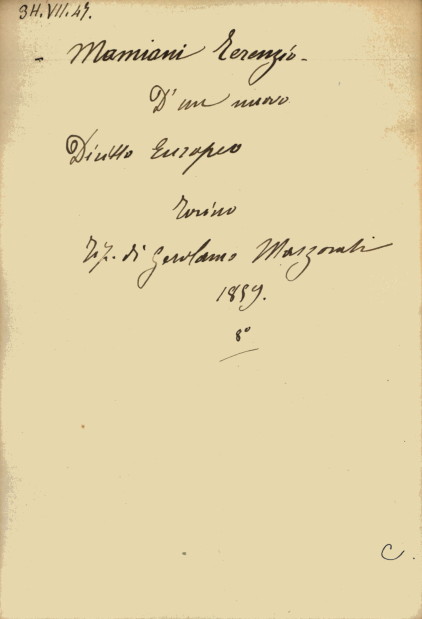 34.VII.47.
- Mamiani Terenzio -
D'un nuovo
Diritto Europeo
Torino
Tip. di Gerolamo Marzorati
1859.
8°
C.